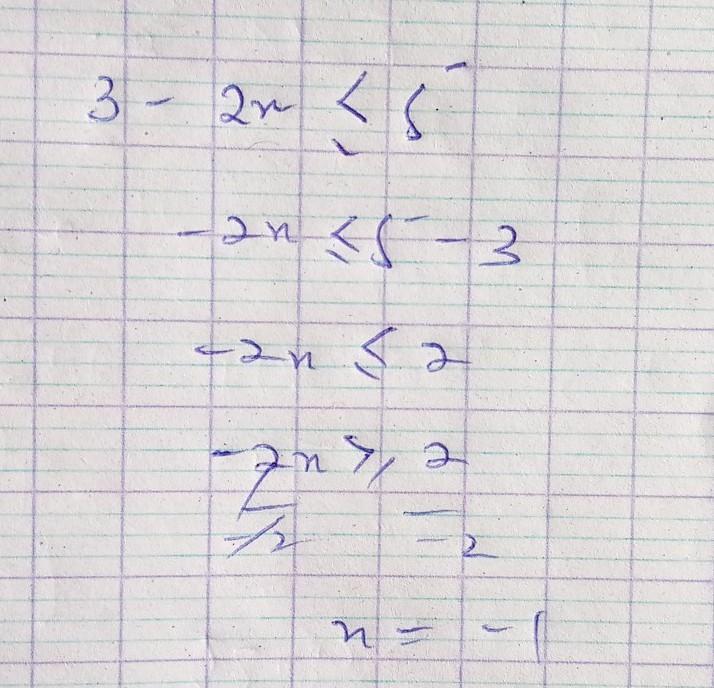 3 - 2x ≤ 5
-2x ≤ 5 - 3
-2x ≤ 2
-2x/-2 ≥ 2/-2
x = -1